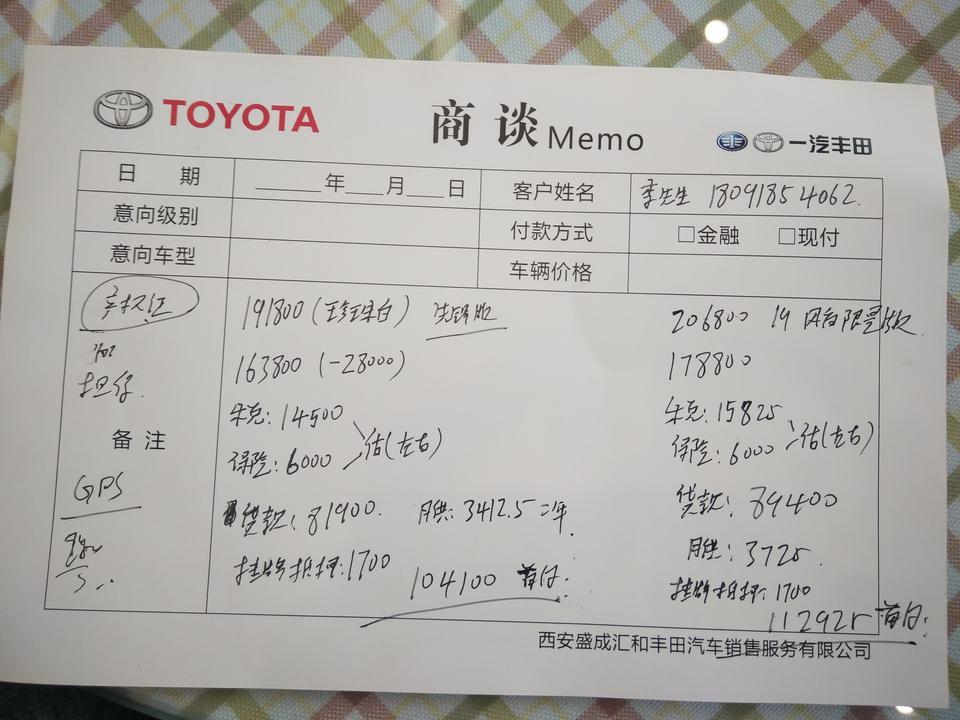 TOYOTA 商谈 Memo 一汽丰田
日 期 ____年__月__日 客户姓名 李先生 18091854062.
意向级别 付款方式 □金融 □现付
意向车型 车辆价格
191800 (珍珠白) 206800 19
163800 (-28000) 178800
担保.
14500 15825
备注
保险: 6000 估(左右) 保险: 6000 估(左右)
GPS
贷款: 81900. 月供: 3412.5 二年. 贷款: 89400
月供: 3725
挂牌抵押: 1700 挂牌抵押: 1700
104100 首付. 112925 首付.
西安盛成汇和丰田汽车销售服务有限公司